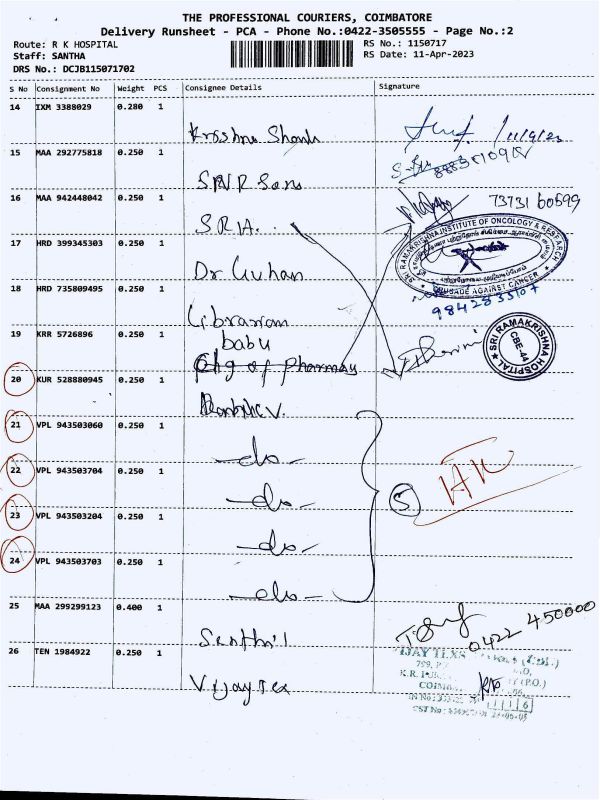 THE PROFESSIONAL COURIERS, COIMBATORE
Delivery Runsheet - PCA - Phone No.:0422-3505555 - Page No.:2
Route: R K HOSPITAL
RS No.: 1150717
Staff: SANTHA
RS Date: 11-Apr-2023
DRS No.: DCJB115071702
S No Consignment No Weight PCS Consignee Details Signature
14 IXM 3388029 0.280 1
15 MAA 292775818 0.250 1
SNR Sons
16 MAA 942448042 0.250 1 73731 60599
S.R.H.
17 HRD 399345303 0.250 1
SRI RAMAKRISHNA INSTITUTE OF ONCOLOGY & RESEARCH
CRUSADE AGAINST CANCER
Dr Guhan
18 HRD 735809495 0.250 1
Librarian
19 KRR 5726896 0.250 1
babu
SRI RAMAKRISHNA HOSPITAL
CBE-44
of Pharmay
20 KUR 528880945 0.250 1
21 VPL 943503060 0.250 1
-do-
22 VPL 943503704 0.250 1
-do-
5
23 VPL 943503204 0.250 1
-do-
24 VPL 943503703 0.250 1
-do-
25 MAA 299299123 0.400 1
0422 450000
Senthil
26 TEN 1984922 0.250 1
Vijay Tex